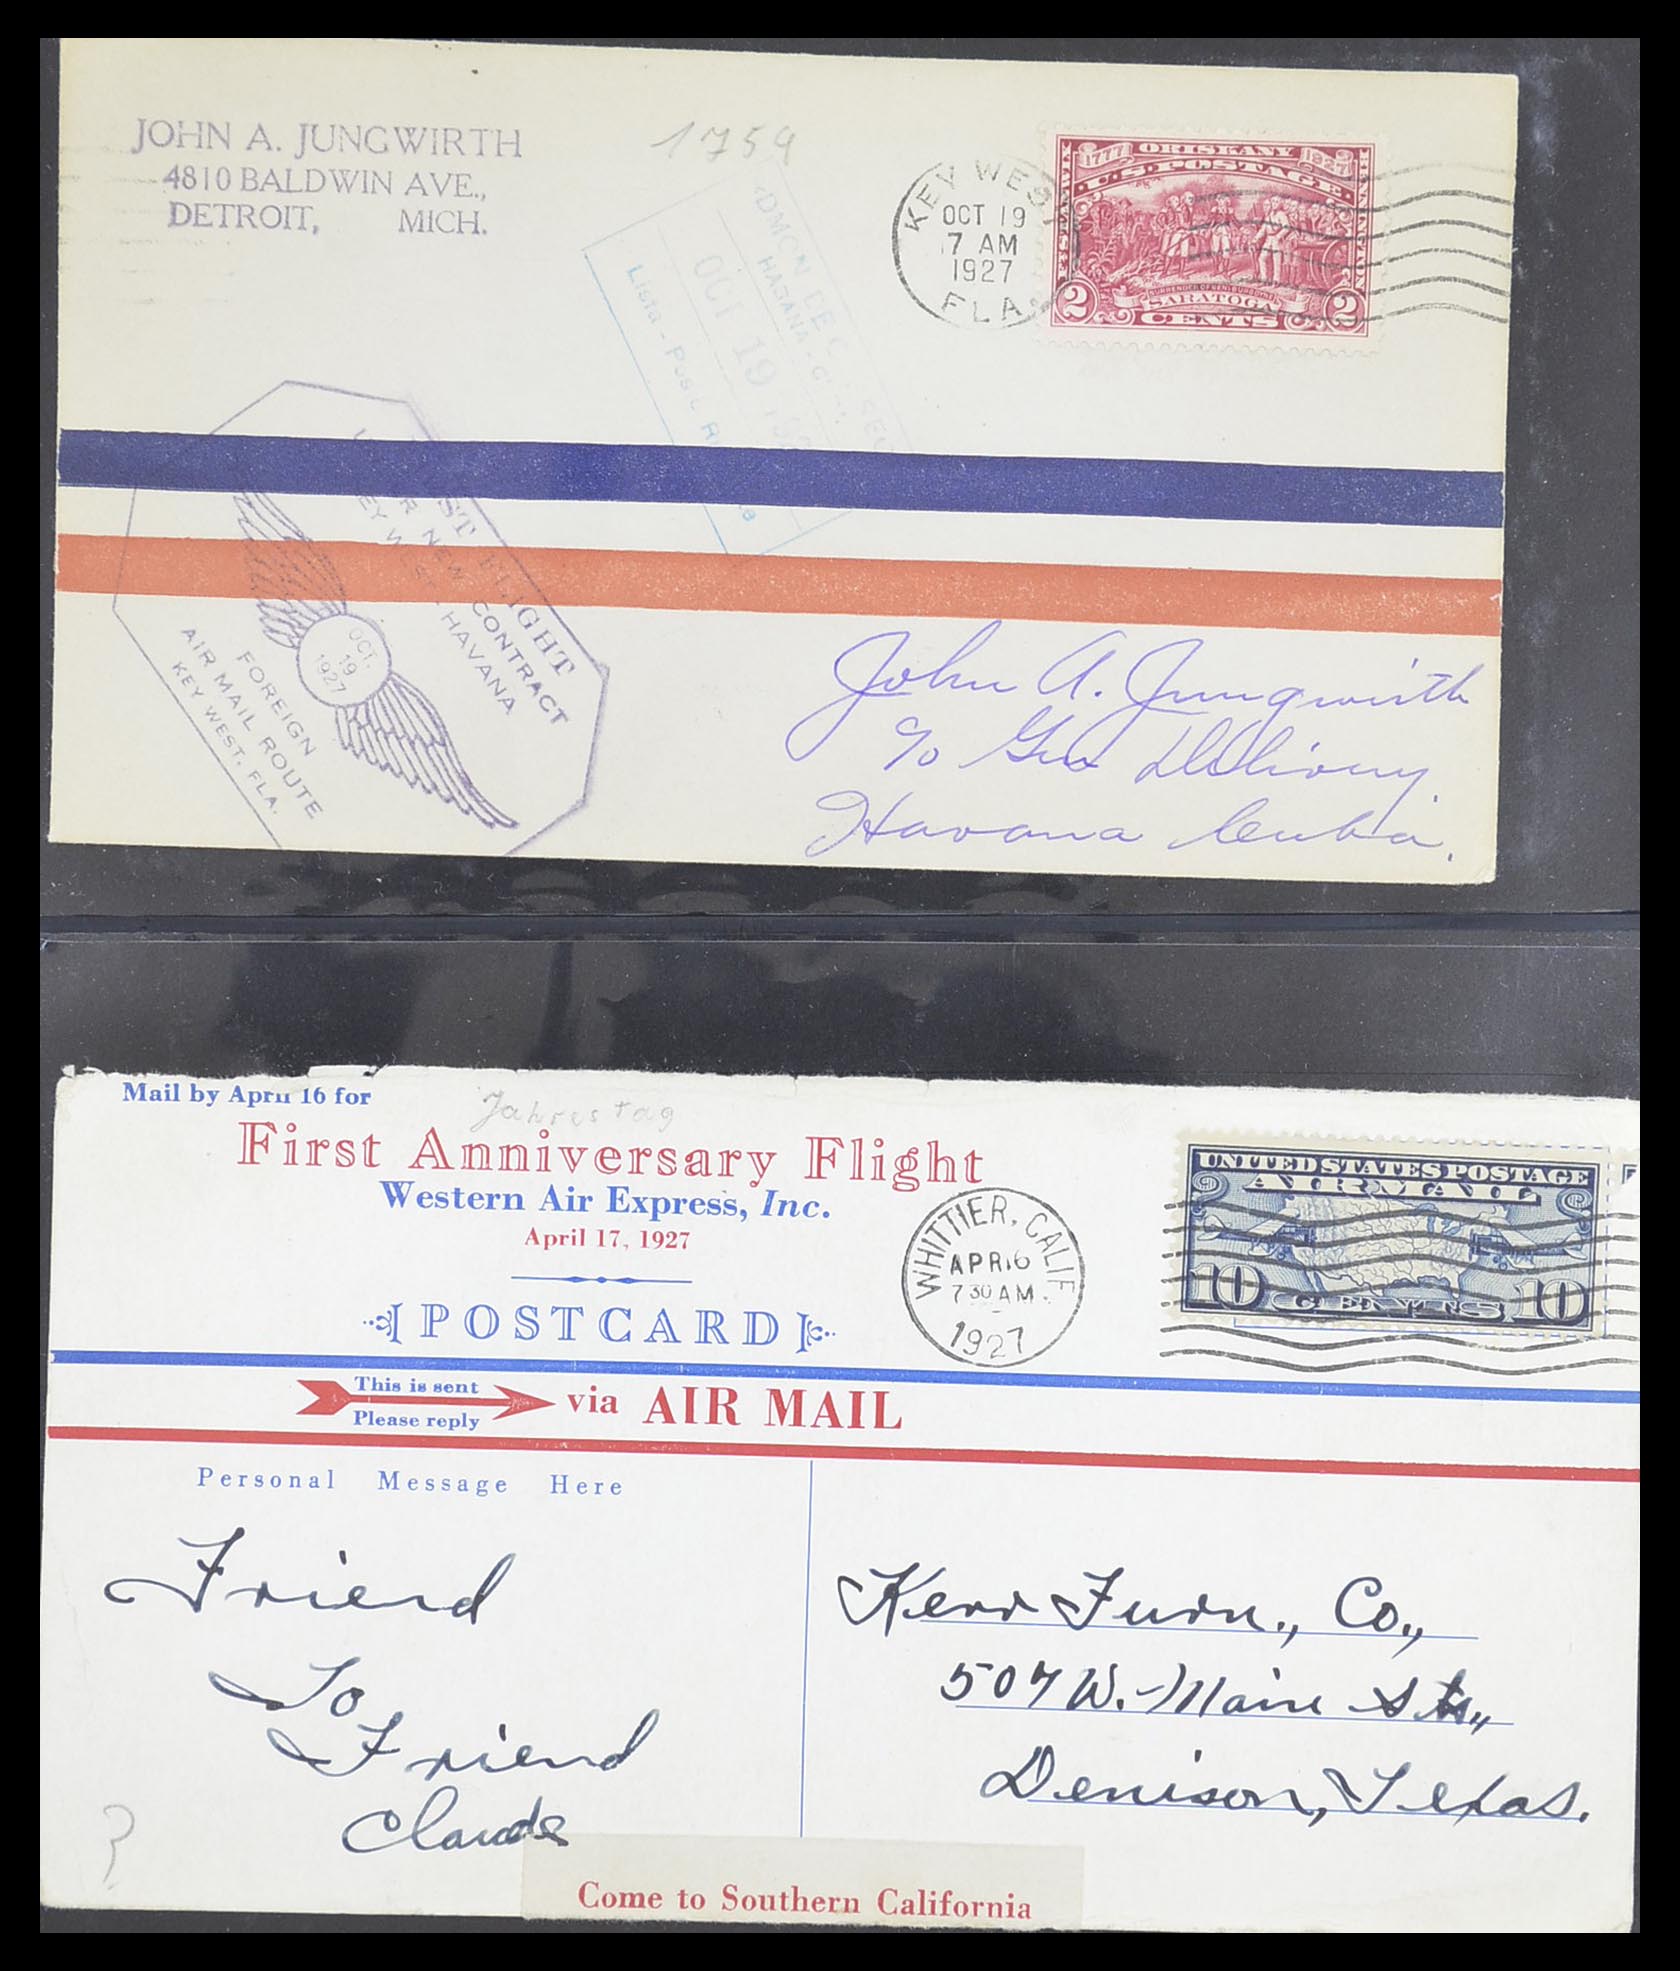 JOHN A. JUNGWIRTH
4810 BALDWIN AVE.,
DETROIT, MICH.
1759
ADMON DE C SEC
HABANA - C
OCT 19
Lista - Post. R
KEY WEST
OCT 19
7 AM
1927
FLA.
1777 ORISKANY 1927
U.S. POSTAGE
SURRENDER OF GENL BURGOYNE
SARATOGA
2 CENTS 2
FIRST FLIGHT
UNDER NEW CONTRACT
KEY WEST - HAVANA
OCT.
19
1927
FOREIGN
AIR MAIL ROUTE
KEY WEST, FLA.
John A. Jungwirth
c/o Gen Delivery.
Havana Cuba.
Mail by April 16 for
Jahrestag
First Anniversary Flight
Western Air Express, Inc.
April 17, 1927
POSTCARD
WHITTIER, CALIF
APR 16
7 30 AM.
1927
UNITED STATES POSTAGE
AIR MAIL
10 CENTS 10
This is sent
Please reply
via AIR MAIL
Personal Message Here
Friend
To
Friend
Claude
?
Kerr Furn., Co.,
507 W. Main St.,
Denison, Texas.
Come to Southern California